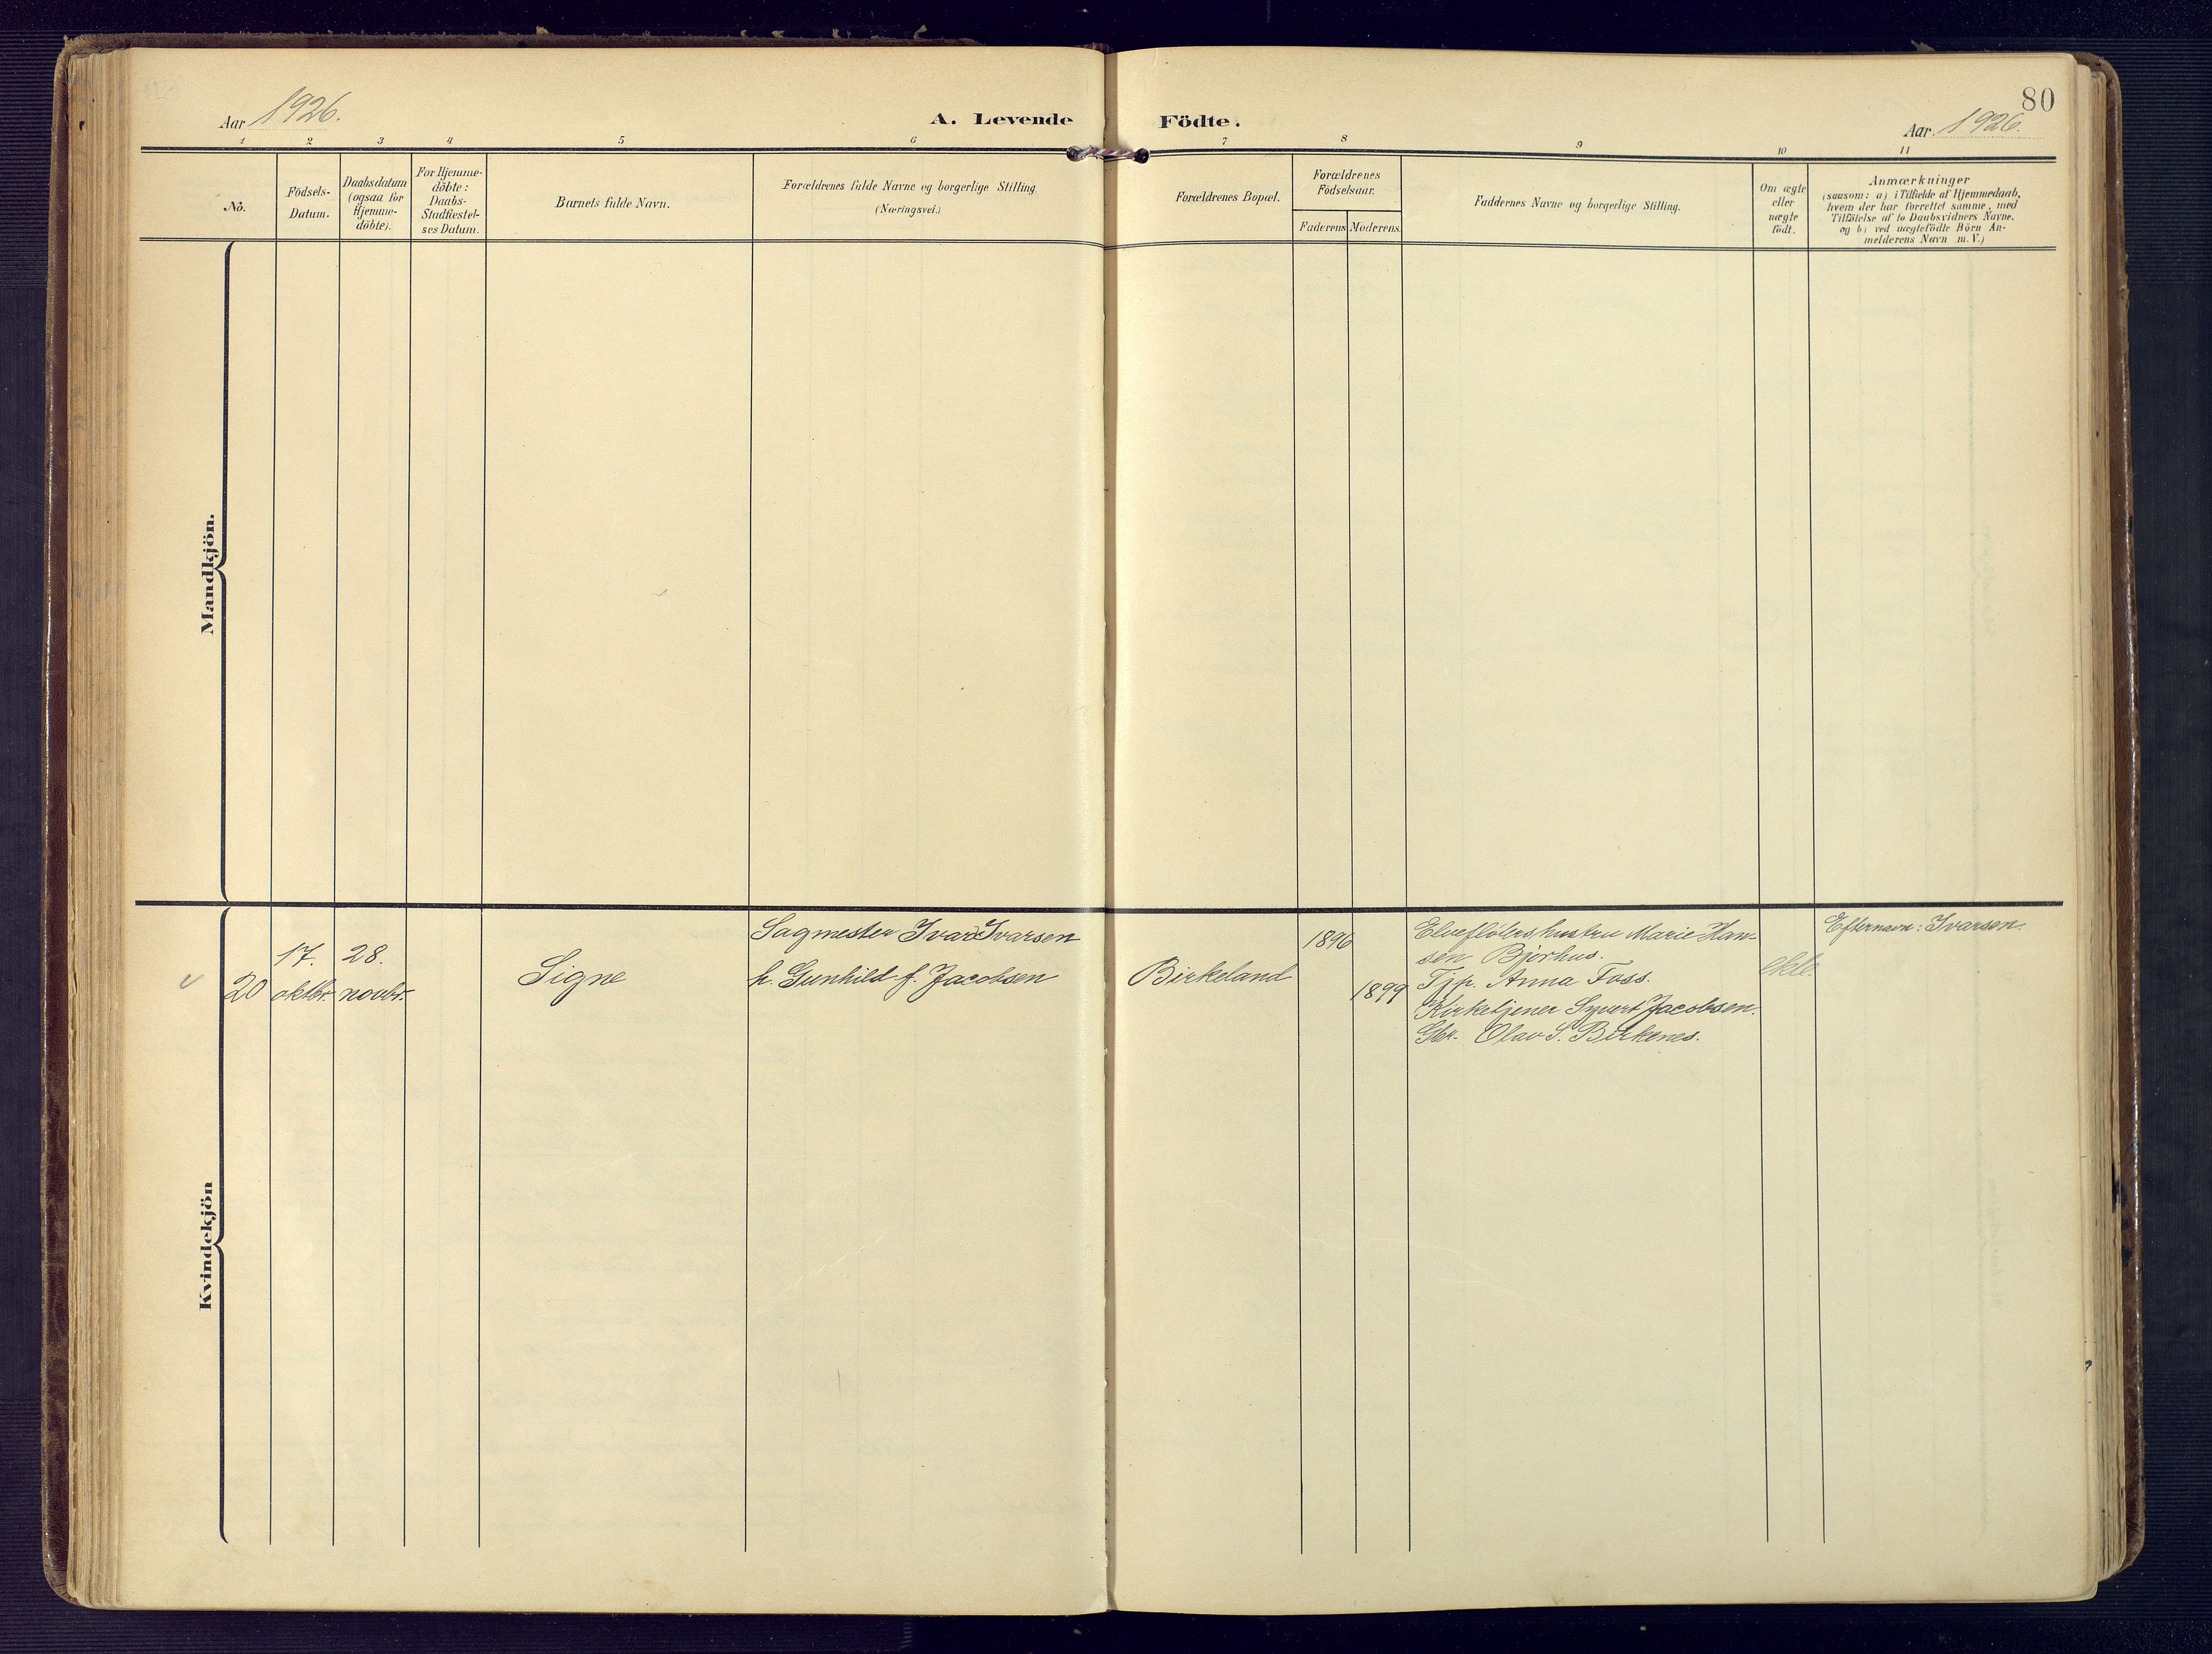 80
Aar 1926.
A. Levende Födte.
Aar. 1926.
1 2 3 4 5 6 7 8 9 10 11
No.
Födsels-
Datum.
Daabsdatum
(ogsaa for
Hjemme-
döbte).
For Hjemme-
döbte:
Daabs-
Stadfæstel-
ses Datum.
Barnets fulde Navn.
Forældrenes fulde Navne og borgerlige Stilling
(Næringsvei.)
Forældrenes Bopæl.
Forældrenes
Födselsaar.
Faderens
Moderens.
Faddernes Navne og borgerlige Stilling.
Om ægte
eller
uægte
födt.
Anmærkninger
(saasom: a) i Tilfælde af Hjemmedaab,
hvem der har forrettet samme, med
Tilföielse af to Daabsvidners Navne,
og b) ved uægtefödte Börn An-
melderens Navn m. V.)
Mandkjön.
Kvindekjön
20
17.
oktbr.
28.
novbr.
Signe
Sagmester Ivar Ivarsen
h. Gunhild f. Jacobsen
Birkeland
1896
1899
Elvefløters hustru Marie Han-
sen Bjørhus.
Tjp. Anna Foss.
Kirketjener Syvert Jacobsen.
Gbr. Olav S. Birkenes.
ekte.
Efternavn: Ivarsen.